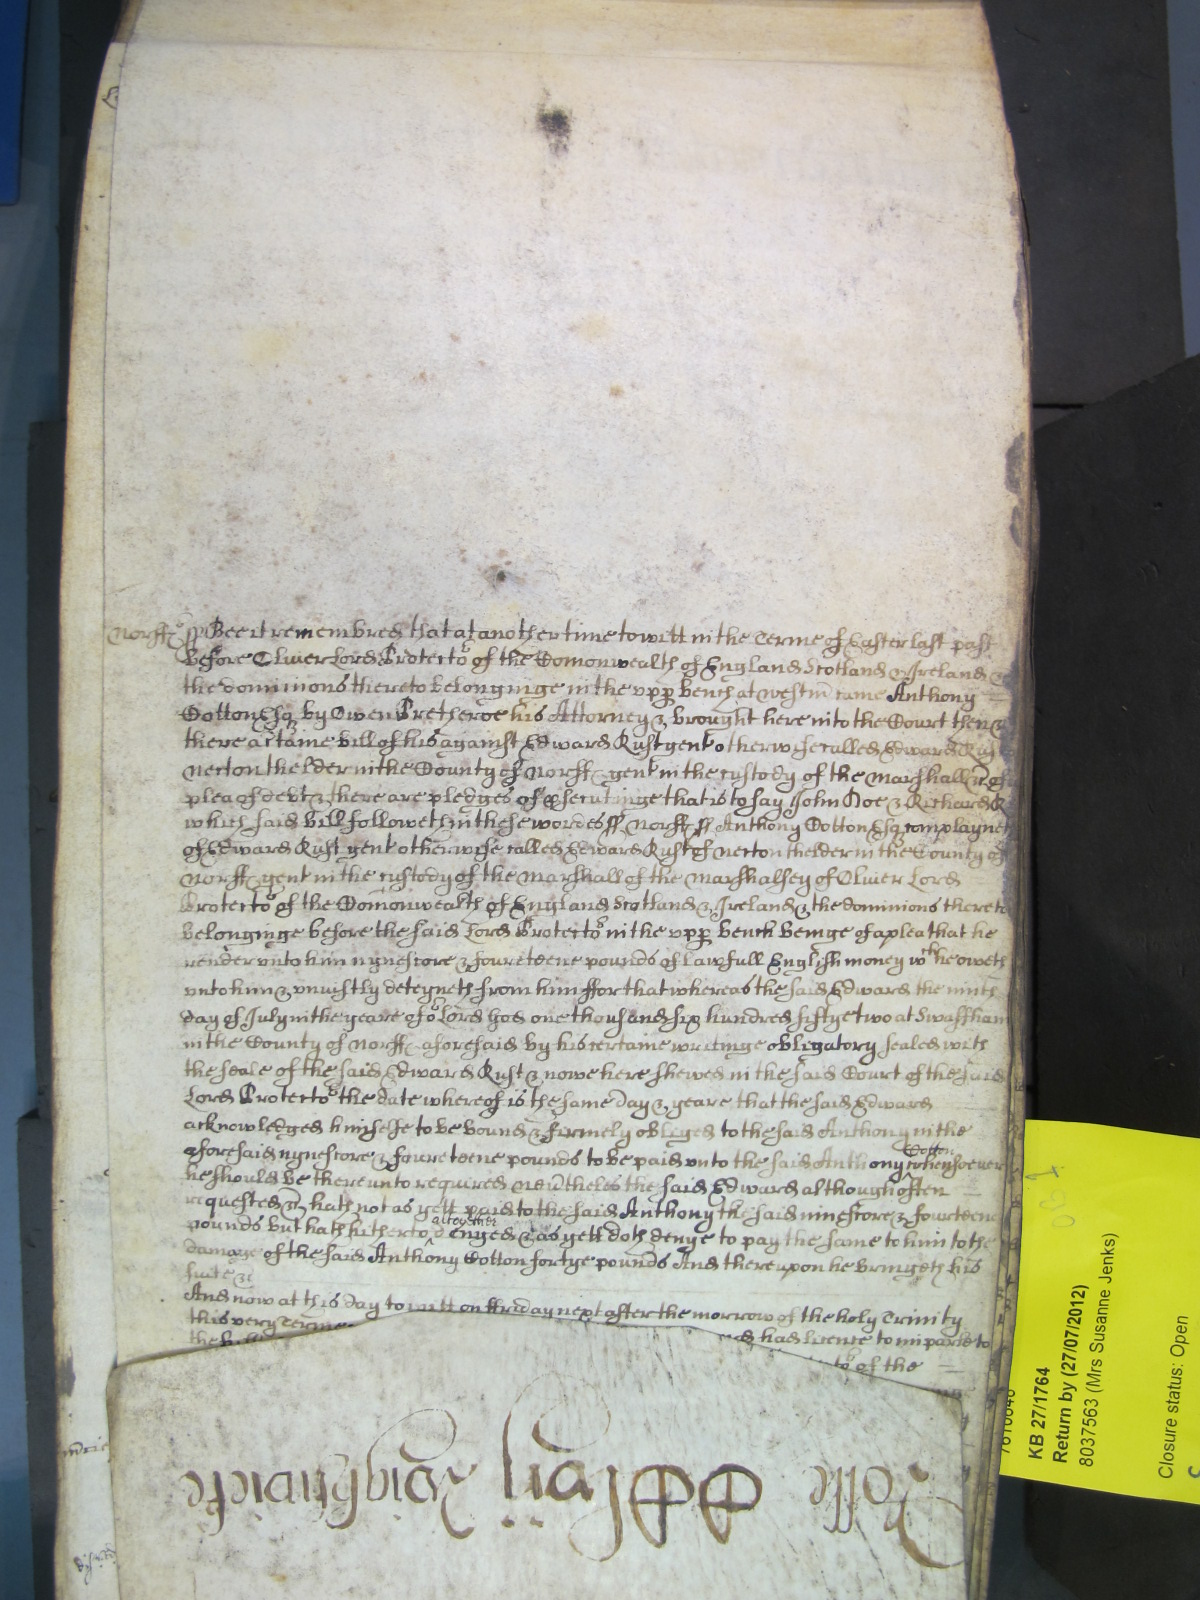 Norff ss Bee it remembred that at another time to witt in the Terme of Easter last past
before Oliver Lord Protector of the Comonwealth of England Scotland & Ireland &
the dominions thereto belonginge in the upp bench at westm came Anthony
Cotton Esq by Owen Bretheroe his Attorney & brought here into the Court then &
there a certaine bill of his against Edward Rust gent otherwise called Edward Rust
Necton the elder in the County of Norff gent in the custody of the marshall &c of
plea of debt & there are pledges of psecutinge that is to say John Doe & Richard R
which said bill followeth in these wordes ss Norff ss Anthony Cotton Esq complaynet
of Edward Rust gent otherwise called Edward Rust of Necton the elder in the County of
Norff gent in the custody of the marshall of the marshalsey of Oliver Lord
Protector of the Comonwealth of England Scotland & Ireland & the dominions thereto
belonginge before the said Lord Protector in the upp bench beinge of a plea that he
render unto him nynescore & foureteene pounds of lawfull English money wch he oweth
unto him & uniustly deteyneth from him ffor that whereas the said Edward the ninth
day of July in the yeare of or Lord God one thousand six hundred fiftye two at Swaffham
in the County of Norff aforesaid by his certaine writinge obligatory sealed with
the seale of the said Edward Rust & nowe here shewed in the said Court of the said
Lord Protector the date whereof is the same day & yeare that the said Edward
acknowledged himselfe to be bound & firmely obliged to the said Anthony in the
aforesaid nynescore & foureteene pounds to be paid unto the said Anthony Cotton whensoever
he should be thereunto required Nevtheles the said Edward although often
requested &c hath not as yett paid to the said Anthony the said ninescore & fourteene
pounds but hath hitherto altogether denyed & as yett doth denye to pay the same to him to the
damage of the said Anthony Cotton fortye pounds And thereupon he bringeth his
suite &c
And now at this day to witt on ffriday next after the morrow of the holy Trinity
this very Terme
the had licence to imparle to
tor of the
Rolle
KB 27/1764
Return by (27/07/2012)
8037563 (Mrs Susanne Jenks)
Closure status: Open